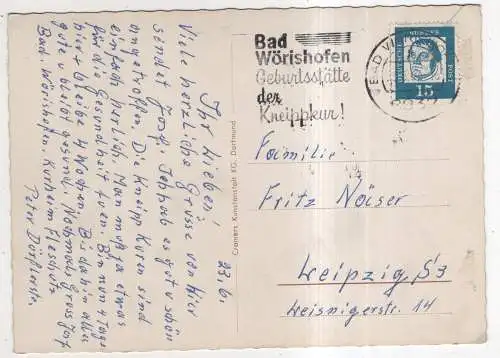 23.6.
Ihr Lieben!
Viele herzliche Grüsse von hier
sendet Josef.
angetroffen. Die Kneipp Kuren sind
einfach herrlich. Man muß ja etwas
für die Gesundheit tuen. Bin nun 4 Tage
hier u. bleibe 4 Wochen. Bis dahin alles
gute u. bleibt gesund. Nochmals Gruss Josef
Bad. Wörishofen. Kurheim
Peter
Cramers Kunstanstalt KG., Dortmund
Bad
Wörishofen
Geburtsstätte
der
Kneippkur!
DEUTSCHE
BUNDES
POST
15
Familie
Fritz Nöiser
Leipzig S3
Meisnigerstr. 14